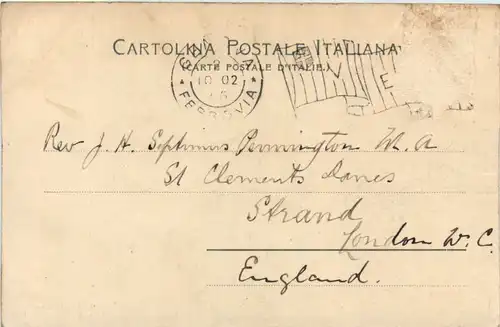 CARTOLINA POSTALE ITALIANA
(CARTE POSTALE D'ITALIE.)
10 02
FERROVIA
Rev J. H. Septimus Pennington M. A
St Clements Danes
Strand
London W. C.
England.